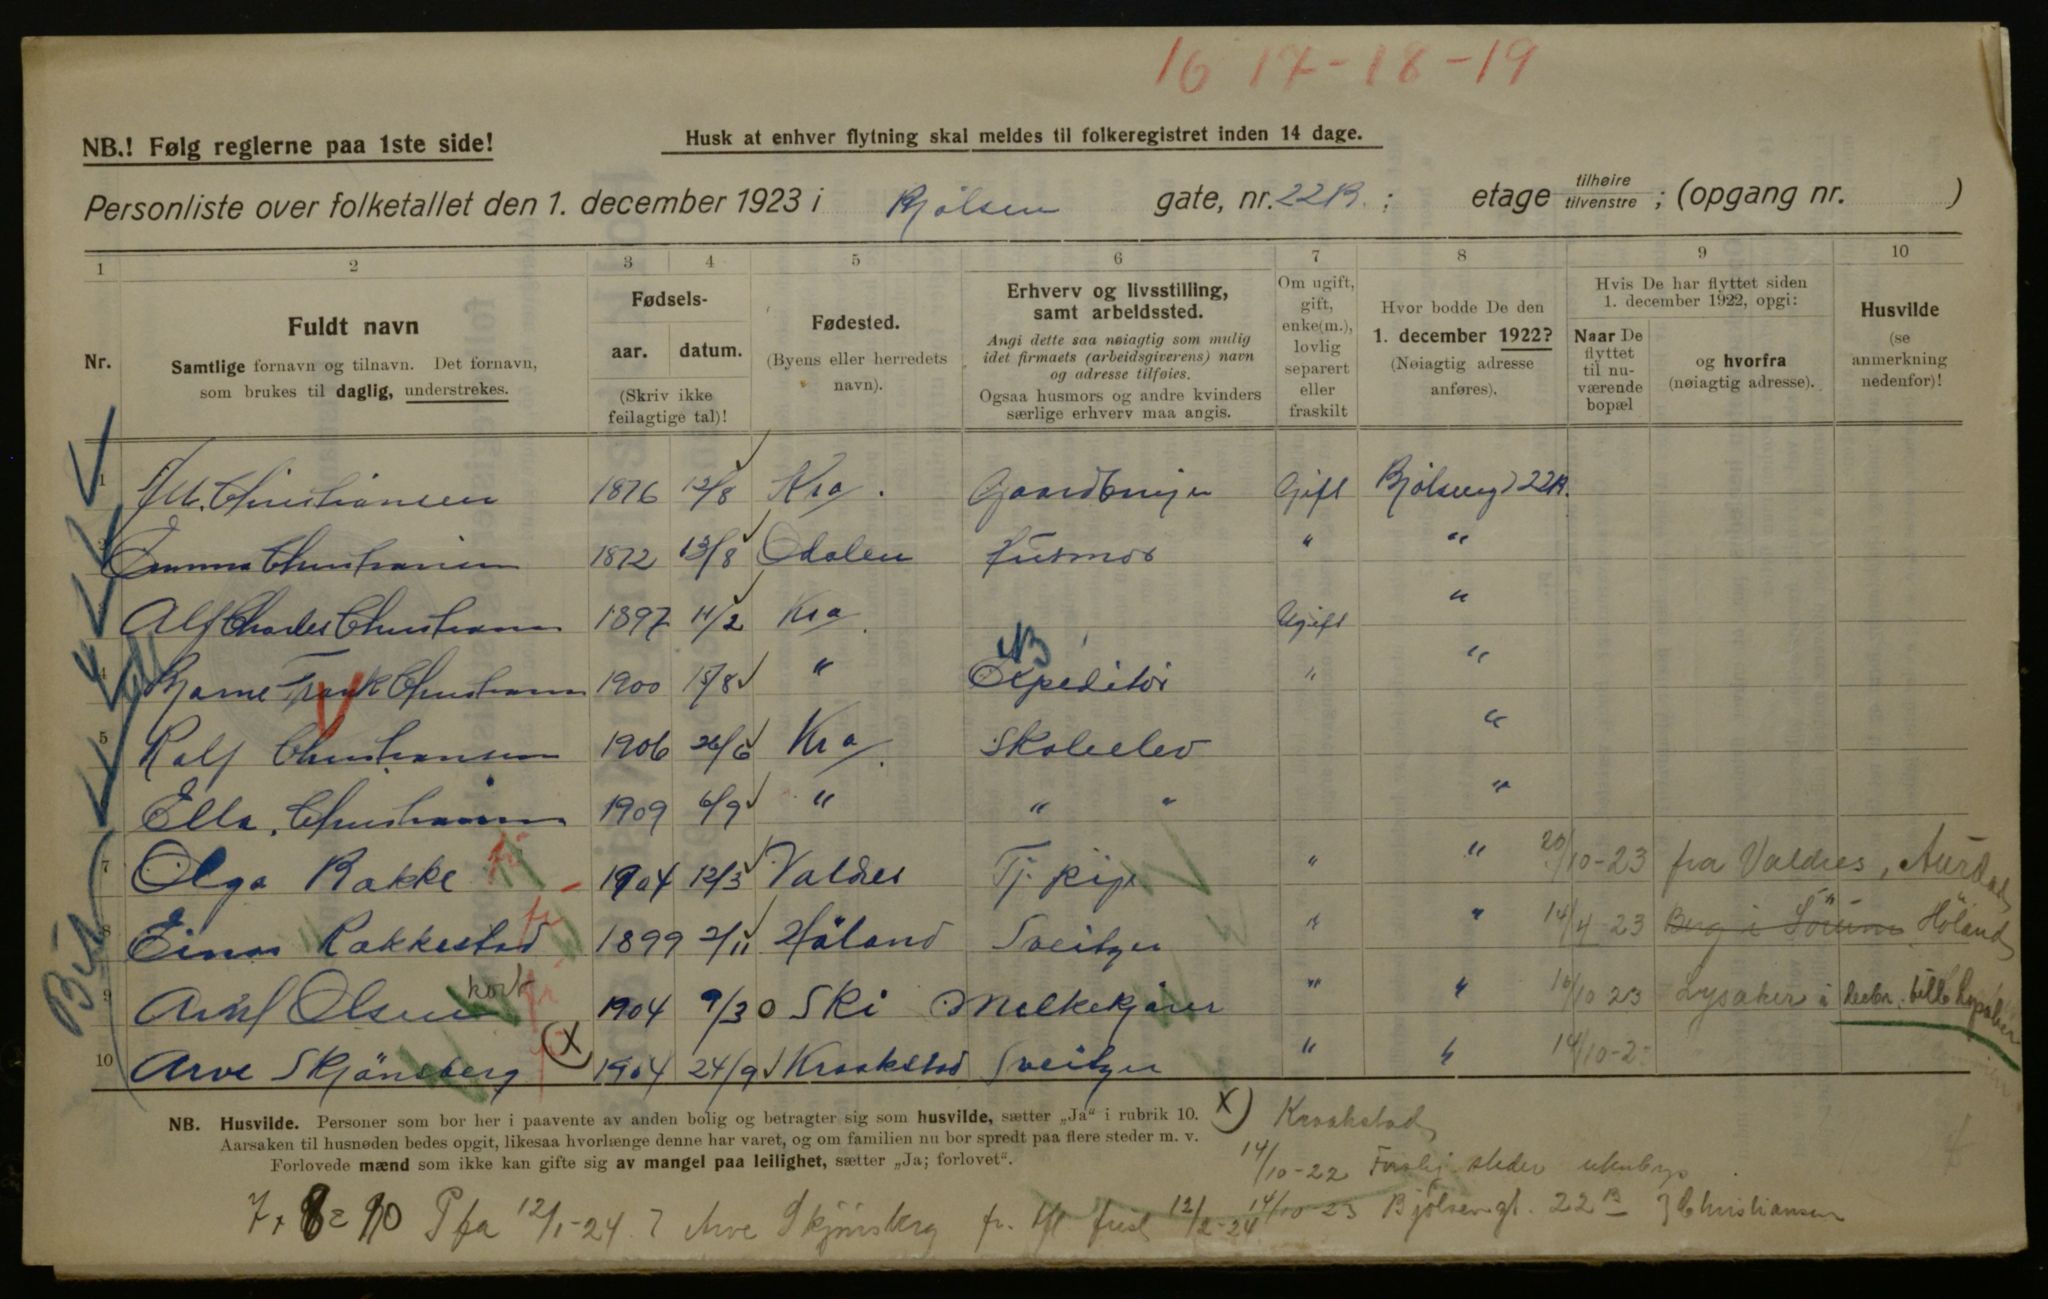 16 17-18-19
NB.! Følg reglerne paa 1ste side!
Husk at enhver flytning skal meldes til folkeregistret inden 14 dage.
Personliste over folketallet den 1. december 1923 i Bjølsen gate, nr. 22B.; etage tilhøire tilvenstre ; (opgang nr. )
1 2 3 4 5 6 7 8 9 10
Nr.
Fuldt navn
Samtlige fornavn og tilnavn. Det fornavn,
som brukes til daglig, understrekes.
Fødsels-
aar. datum.
(Skriv ikke
feilagtige tal)!
Fødested.
(Byens eller herredets
navn).
Erhverv og livsstilling,
samt arbeidssted.
Angi dette saa nøiagtig som mulig
idet firmaets (arbeidsgiverens) navn
og adresse tilføies.
Ogsaa husmors og andre kvinders
særlige erhverv maa angis.
Om ugift,
gift,
enke(m.),
lovlig
separert
eller
fraskilt
Hvor bodde De den
1. december 1922?
(Nøiagtig adresse
anføres).
Hvis De har flyttet siden
1. december 1922, opgi:
Naar De
flyttet
til nu-
værende
bopæl
og hvorfra
(nøiagtig adresse).
Husvilde
(se
anmerkning
nedenfor)!
1 Christiansen 1876 12/8 Kra. Gift 22B.
2 Emma Christiansen 1872 13/8 Odalen Husmor " "
3 Alf Charles Christiansen 1897 11/2 Kra. Ugift "
4 Bjarne Frank Christiansen 1900 15/8 " Expeditør " "
5 Rolf Christiansen 1906 26/6 Kra. Skoleelev "
Ella Christiansen 1909 6/9 " " " "
7 Olga Bakke 1904 12/3 Valdres Tj. pige " " 20/10-23 fra Valdres, Aurdal
8 Einar Rakkestad 1899 2/11 Høland Sveitzer " " 14/4 23 Berg i Sørum Høland
9 Olsen 1904 9/3 Ski Melkekjører " " 10/10 23 Lysaker i
10 Arve Skjønsberg (X) 1904 24/9 Kraakstad Sveitzer " " 14/10-2
NB. Husvilde. Personer som bor her i paavente av anden bolig og betragter sig som husvilde, sætter „Ja“ i rubrik 10.
Aarsaken til husnøden bedes opgit, likesaa hvorlænge denne har varet, og om familien nu bor spredt paa flere steder m. v.
Forlovede mænd som ikke kan gifte sig av mangel paa leilighet, sætter „Ja; forlovet“.
X) Kraakstad
14/10-22 steder utenbys
14/10-23 Bjølsengt. 22B Christiansen
12/1-24 Arve Skjønsberg fr. 12/2-24